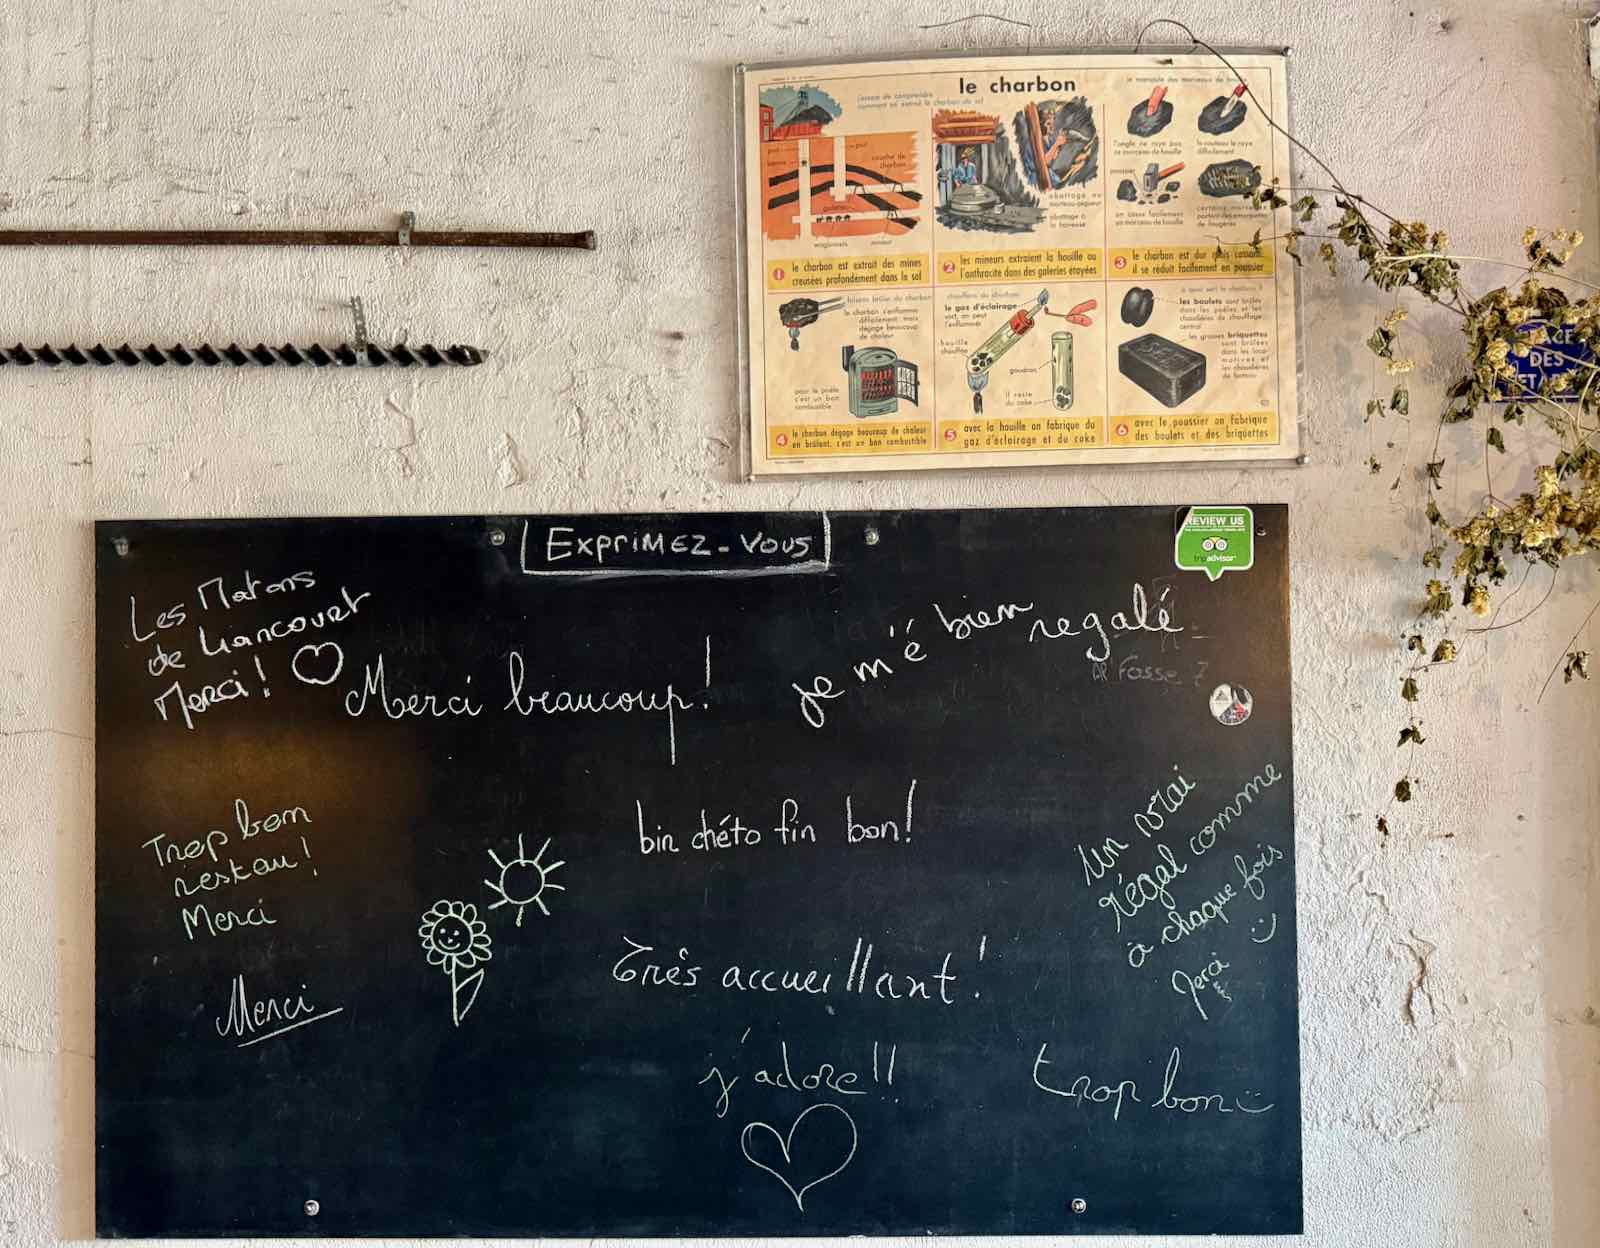 le charbon
j'essaie de comprendre
comment on extrait le charbon du sol
puit
puit
couche de
charbon
galeries
wagonnets
mineur
1 le charbon est extrait des mines
creusées profondément dans le sol
abattage au
marteau-piqueur
abattage à
la haveuse
2 les mineurs extraient la houille ou
l'anthracite dans des galeries étayées
je manipule des morceaux de
l'ongle ne raye pas
ce morceau de houille
le couteau le raye
difficilement
poussier
on casse facilement
un morceau de houille
certains
portent des empreintes
de fougères
3 le charbon est dur mais cassant
il se réduit facilement en poussier
faisons brûler du charbon
le charbon s'enflamme
difficilement mais
dégage beaucoup
de chaleur
pour le poêle
c'est un bon
combustible
4 le charbon dégage beaucoup de chaleur
en brûlant, c'est un bon combustible
chauffons du charbon
le gaz d'éclairage
sort, on peut
l'enflammer
houille
chauffée
goudron
il reste
du coke
5 avec la houille on fabrique du
gaz d'éclairage et du coke
à quoi sert le charbon ?
les boulets sont brûlés
dans les poêles et les
chaudières de chauffage
central
les grosses briquettes
sont brûlées
dans les loco-
motives et
les chaudières
de bateau
6 avec le poussier on fabrique
des boulets et des briquettes
DES
EXPRIMEZ-VOUS
REVIEW US
tripadvisor
Les Matons
de Liancourt
Merci !
Merci beaucoup !
Je m'é bien regalé
Fosse 7
Trop bon
restau !
Merci
bin chéto fin bon !
Un vrai
régal comme
à chaque fois
Merci
Merci
Très accueillant !
j'adore !!
trop bon